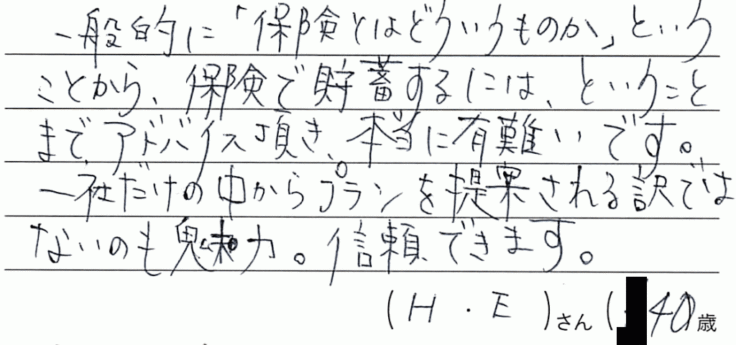 一般的に「保険とはどういうものか」という
ことから、保険で貯蓄するには、ということ
まで、アドバイス頂き、本当に有難いです。
一社だけの中からプランを提案される訳では
ないのも魅力。信頼できます。
(H・E)さん(40歳